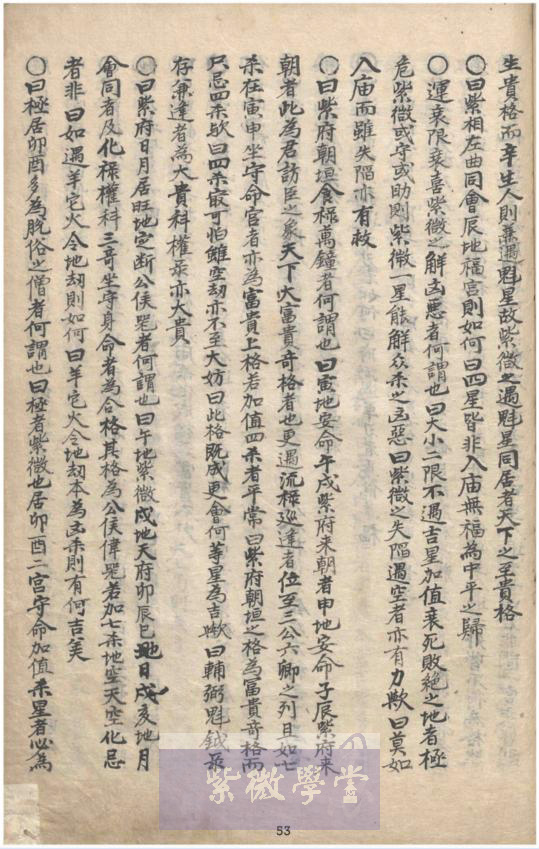 生貴格而辛生人則兼遇魁星故紫微之遇魁星同居者天下之至貴格
○曰紫相左曲同會辰地福宮則如何曰四星皆非入庙無福為中平之歸
○運衰限衰喜紫微之解凶惡者何謂也曰大小二限不遇吉星加值衰死敗絶之地者極
危紫微或守或助則紫微一星能解众杀之凶惡曰紫微之失陷遇空者亦有力歟曰莫如
入庙而雖失陷亦有救
○曰紫府朝垣食禄萬鐘者何謂也曰寅地安命午戌紫府来朝者申地安命子辰紫府来
朝者此為君訪臣之象天下大富貴奇格者也更遇流禄巡逢者位至三公六卿之列且如七
杀在寅申坐守命宮者亦為富貴上格若加值四杀者平常曰紫府朝垣之格為富貴奇格而
只忌四杀欤曰四杀最可怕雖空劫亦不至大妨曰此格既成更會何等星為吉歟曰輔弼魁鉞最
存兼逢者為大貴科權条亦大貴
○曰紫府日月居旺地定断公侯器者何謂也曰午地紫微戌地天府卯辰巳地日戌亥地月
會同者及化禄權科三奇坐守身命者為合格其格為公侯偉器若加七杀地空天空化忌
者非曰如遇羊它火令地刼則如何曰羊它火令地刼本為凶杀則有何吉美
○曰極居卯酉多為脫俗之僧者何謂也曰極者紫微也居卯酉二宮守命加值杀星者必為
紫微學堂
53